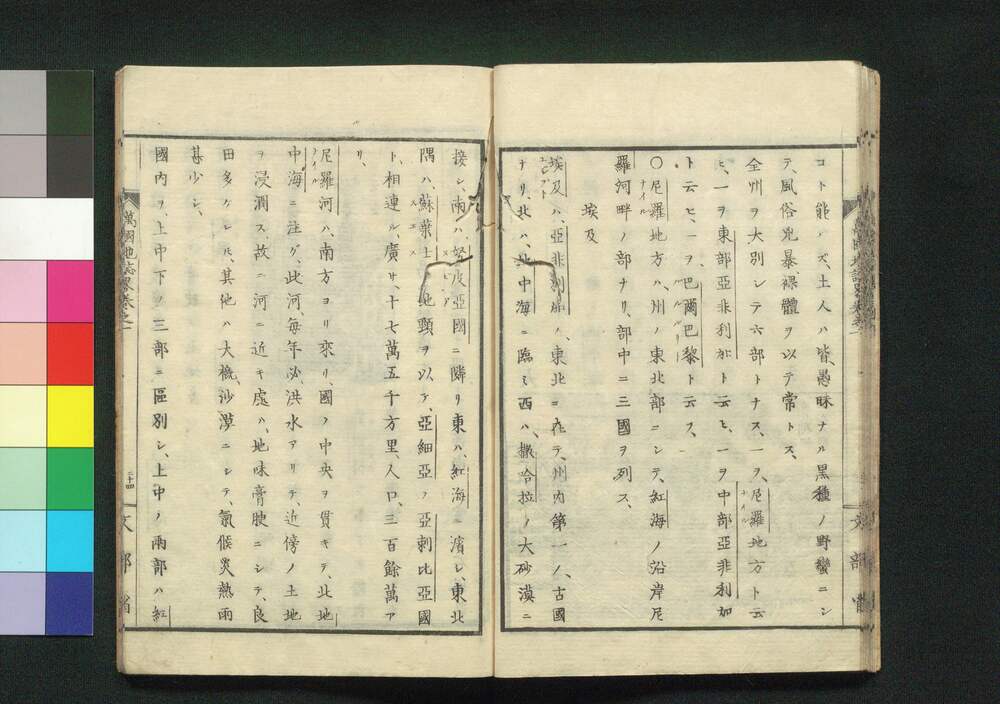 コト能ハズ、土人ハ皆愚昧ナル黒種ノ野蠻ニシ
テ、風俗兇暴、裸體ヲ以テ常トス、
全州ヲ大別シテ六部トナス、一ヲ、尼羅地方ト云
ヒ、一ヲ東部亞非利加ト云ヒ、一ヲ中部亞非利加
ト云ヒ、一ヲ、巴爾巴黎ト云フ、
〇尼羅地方ハ、州ノ東北部ニシテ、紅海ノ沿岸尼
羅河畔ノ部ナリ、部中ニ三國ヲ列ス、
埃及
埃及ハ、亞非利加ノ、東北ニ在テ、州內第一ノ、古國
ナリ、北ハ、地中海ニ臨ミ西ハ、撒哈拉ノ大砂漠ニ
接シ、南ハ努皮亞國ニ隣リ東ハ、紅海ニ濱シ、東北
隅ハ、蘇葉士地頸ヲ以テ、亞細亞ノ亞剌比亞國
ト、相連ル、廣サ、十七萬五千方里、人口、三百餘萬ア
リ、
尼羅河ハ、南方ヨリ來リ、國ノ中央ヲ貫キテ、地
中海ニ注グ、此河、每年必洪水アリテ、近傍ノ土地
ヲ浸潤ス、故ニ河ニ近キ處ハ、地味膏腴ニシテ、良
田多ケレドモ、其他ハ大概沙漠ニシテ、氣候炎熱雨
甚少シ、
國內ヲ、上中下ノ三部ニ區別シ、上中ノ兩部ハ紅
萬國地誌略卷之一
二十四
文部省